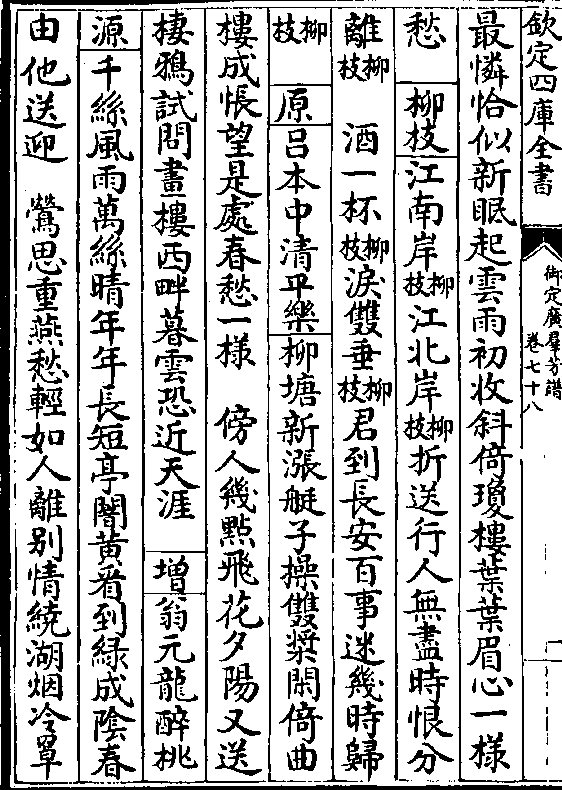 欽定四庫全書
御定廣群芳譜
卷七十八
一
最憐恰似新眠起雲雨初收斜倚瓊樓葉葉眉心一様
愁　柳枝江南岸柳枝江北岸柳枝折送行人無盡時恨分
離柳枝　酒一杯柳枝淚雙垂柳枝君到長安百事迷幾時歸
柳枝　原呂本中清平樂柳塘新漲艇子操雙槳閒倚曲
樓成悵望是處春愁一様　傍人幾點飛花夕陽又送
棲鴉試問畫樓西畔暮雲恐近天涯　増翁元龍醉桃
源千絲風雨萬絲晴年年長短亭闇黄看到緑成陰春
由他送迎　鶯思重燕愁輕如人離别情繞湖烟冷罩